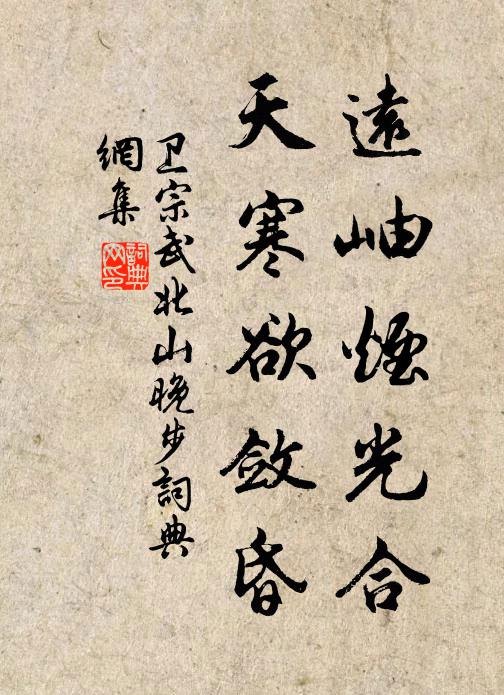 遠岫煙光合
天寒欲斂昏
卫宗武北山晚步詞典
網集
詞典网印